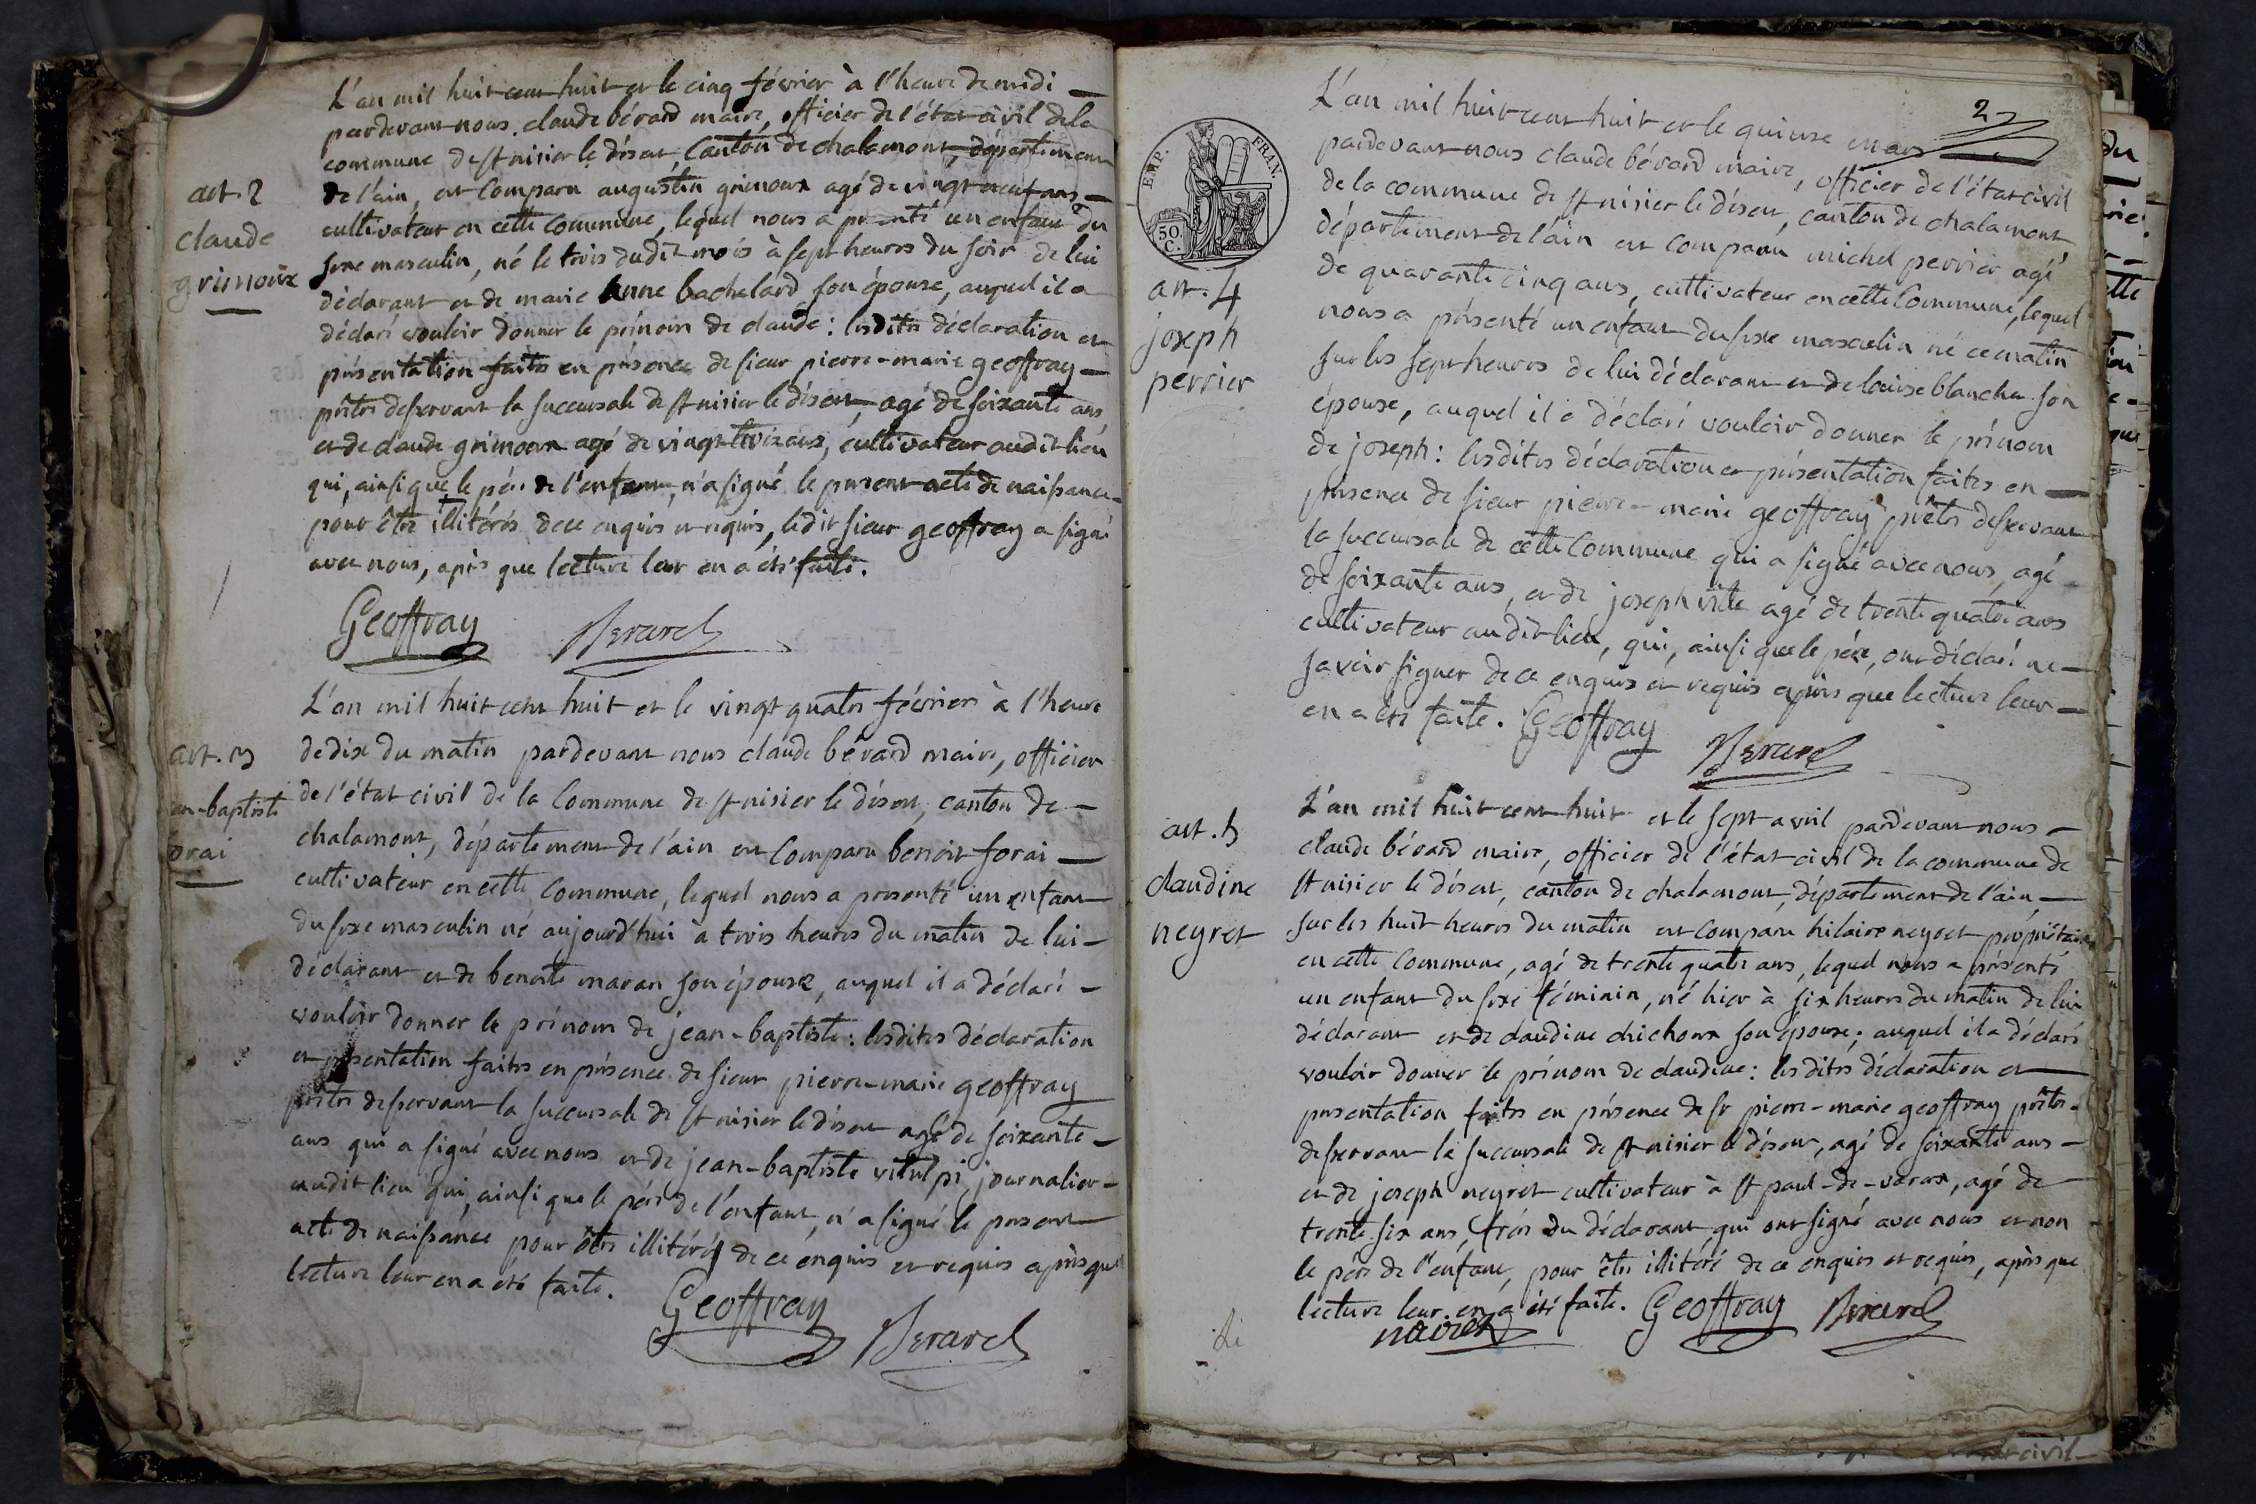 L'an mil huit cent huit et le cinq février à l'heure de midi
pardevant nous claude bérard maire, officier de l'état civil de la
commune de st nisier le désert, Canton de chalamont, département
de l'ain, est Comparu augustin grimoux agé de vingt neuf ans
cultivateur en cette Commune, lequel nous a présenté un enfant du
sexe masculin, né le trois dudit mois à sept heures du soir de lui
déclarant et de marie Anne bachelard son épouse, auquel il a
déclaré vouloir donner le prénom de claude : lesdites déclaration et
présentation faites en présence de sieur pierre-marie geoffray
prêtre desservant la succursale de st nisier le désert, agé de soixante ans
et de claude grimoux agé de vingt trois ans, cultivateur audit lieu
qui, ainsi que le père de l'enfant, n'a signé le present acte de naissance
pour être illitérés de ce enquis et requis, ledit sieur geoffray a signé
avec nous, après que lecture leur en a été faite.
Geoffray Berard
art. 2
claude
grimoux
L'an mil huit cent huit et le vingt quatre février à l'heure
de dix du matin pardevant nous claude bérard maire, officier
de l'état civil de la Commune de st nisier le désert, canton de
chalamont, département de l'ain est Comparu benoit forai
cultivateur en cette Commune, lequel nous a presenté un enfant
du sexe masculin né aujourd'hui à trois heures du matin de lui
déclarant et de benoite maran son épouse, auquel il a déclaré
vouloir donner le prénom de jean-baptiste : lesdites déclaration
et présentation faites en présence de sieur pierre-marie geoffray
prêtre desservant la succursale de st nisier le désert agé de soixante
ans qui a signé avec nous et de jean-baptiste vitulpi journalier
audit lieu qui, ainsi que le père de l'enfant, n'a signé le present
acte de naissance pour être illitérés de ce enquis et requis après que
lecture leur en a été faite.
Geoffray Berard
art. 3
an-baptiste
orai
2
EMP. FRAN.
50.
C.
L'an mil huit cent huit et le quinze mars
pardevant nous claude bérard maire, officier de l'état civil
de la commune de st nisier le désert, canton de chalamont
département de l'ain est comparu michel perrier agé
de quarante cinq ans, cultivateur en cette Commune, lequel
nous a présenté un enfant du sexe masculin né ce matin
sur les sept heures de lui déclarant et de louise blanchu son
épouse, auquel il a déclaré vouloir donner le prénom
de joseph : lesdites déclaration et présentation faites en
présence de sieur pierre-marie geoffray prêtre desservant
la succursale de cette Commune qui a signé avec nous, agé
de soixante ans, et de joseph agé de trente quatre ans
cultivateur audit lieu, qui, ainsi que le père, ont déclaré ne
savoir signer de ce enquis et requis après que lecture leur
en a été faite. Geoffray
Berard
art. 4
joseph
perrier
L'an mil huit cent huit et le sept avril pardevant nous
claude bérard maire, officier de l'état civil de la commune de
st nisier le désert, canton de chalamont, département de l'ain,
sur les huit heures du matin est comparu hilaire neyret propriétaire
en cette Commune, agé de trente quatre ans, lequel nous a présenté
un enfant du sexe féminin, né hier à six heures du matin de lui
déclarant et de claudine chichoux son épouse ; auquel il a déclaré
vouloir donner le prénom de claudine : lesdites déclaration et
presentation faites en présence de sr pierre-marie geoffray prêtre
desservant la succursale de st nisier le désert, agé de soixante ans
et de joseph neyret cultivateur à st paul-de-varax, agé de
trente six ans, frère du déclarant qui ont signé avec nous et non
le père de l'enfant, pour être illitéré de ce enquis et requis, après que
lecture leur en a été faite. Geoffray Berard
art. 5
claudine
neyret